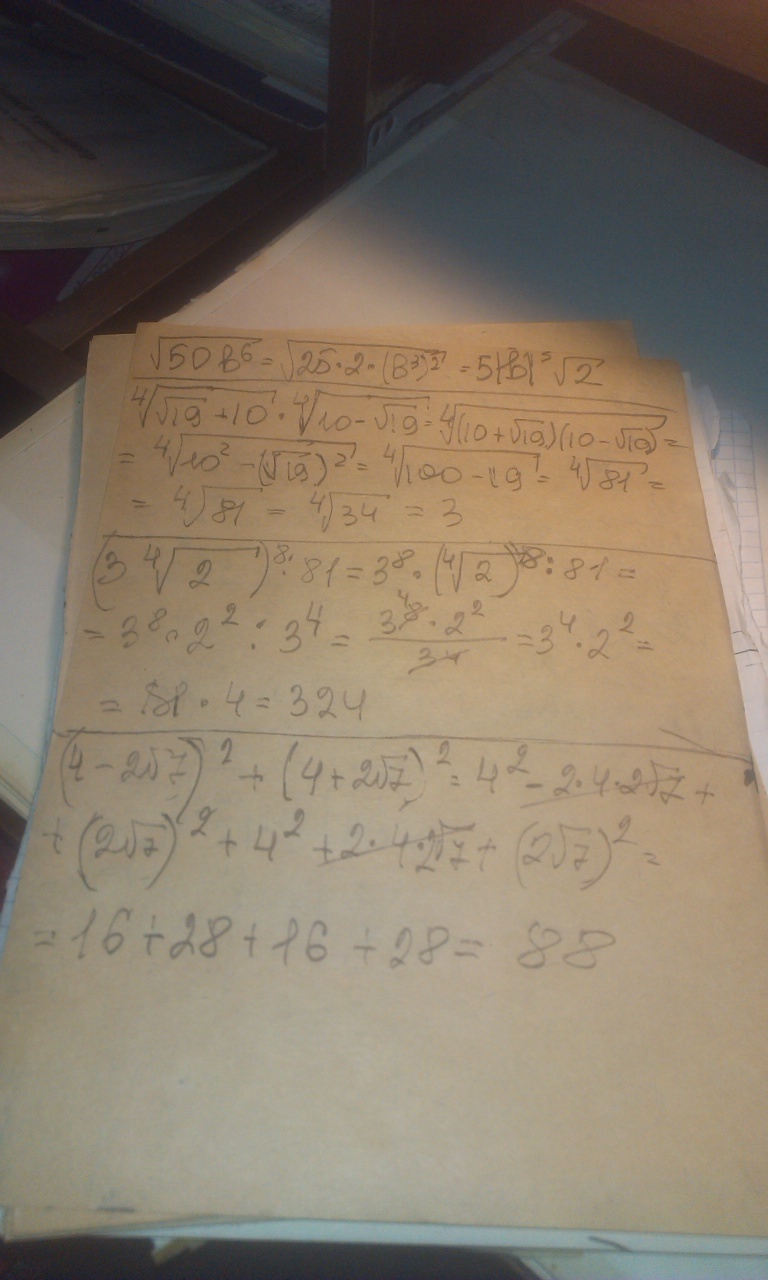 √50b⁶ = √25·2·(b³)² = 5|b|³√2
⁴√√19+10 · ⁴√10-√19 = ⁴√(10+√19)(10-√19) =
= ⁴√10²-(√19)² = ⁴√100-19 = ⁴√81 =
= ⁴√81 = ⁴√34 = 3
(3 ⁴√2)⁸ : 81 = 3⁸·(⁴√2)⁸ : 81 =
= 3⁸·2² : 3⁴ = 3⁸⁴·2²/34 = 3⁴·2² =
= 81·4 = 324
(4-2√7)² + (4+2√7)² = 4² - 2·4·2√7 +
+ (2√7)² + 4² + 2·4·2√7 + (2√7)² =
= 16+28+16+28 = 88